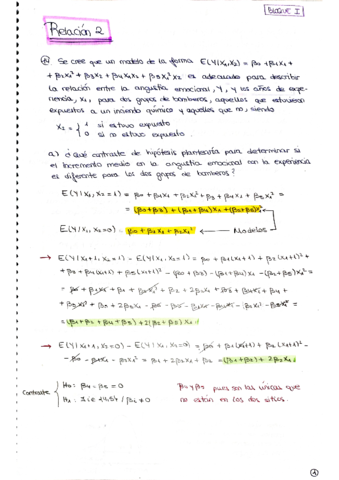 BLOQUE I
Relación 2
Se cree que un modelo de la forma E(Y/X₁,X₂) = β₀ + β₁X₁ +
+ β₂X₁² + β₃X₂ + β₄X₁X₂ + β₅X₁²X₂ es adecuado para describir
la relación entre la angustia emocional, Y, y los años de expe-
riencia, X₁, para dos grupos de bomberos, aquellos que estuvieron
expuestos a un incendio químico y aquellos que no, siendo
X₂ = { 1 si estuvo expuesto
0 si no estuvo expuesto
a) ¿Qué contraste de hipótesis plantearía para determinar si
el incremento medio en la angustia emocional con la experiencia
es diferente para los dos grupos de bomberos?
E(Y/X₁, X₂=1) = β₀ + β₁X₁ + β₂X₁² + β₃ + β₄X₁ + β₅X₁² =
= (β₀+β₃) + (β₁+β₄)X₁ + (β₂+β₅)X₁²
E(Y/X₁, X₂=0) = β₀ + β₁X₁ + β₂X₁² ← Modelos
→ E(Y/X₁+1, X₂=1) - E(Y/X₁, X₂=1) = β₀ + β₁(X₁+1) + β₂(X₁+1)² +
= (β₁+β₂+β₄+β₅) + 2(β₂+β₅)X₁
→ E(Y/X₁+1, X₂=0) - E(Y/X₁, X₂=0) = β₀ + β₁(X₁+1) + β₂(X₁+1)² -
- β₀ - β₁X₁ - β₂X₁² = β₁ + 2β₂X₁ + β₂ = (β₁+β₂) + 2β₂X₁
Contraste { H₀: β₄ = β₅ = 0
β₄ y β₅ pues son las únicas que
no están en los dos sitios.